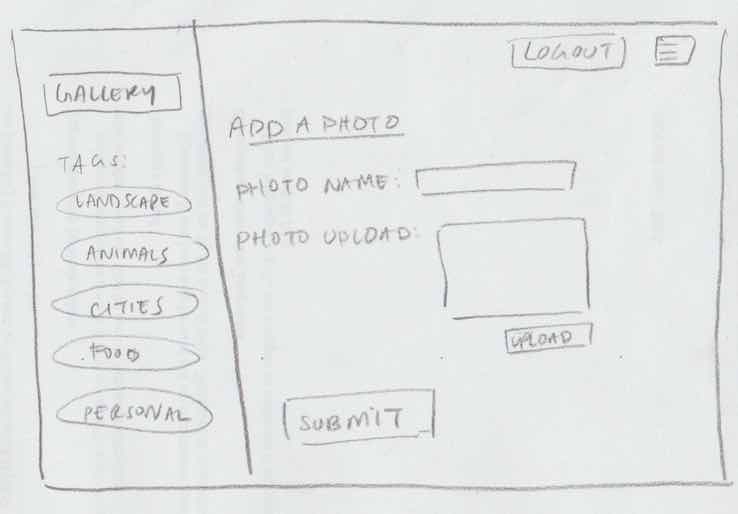 LOGOUT
GALLERY
TAGS:
LANDSCAPE
ANIMALS
CITIES
FOOD
PERSONAL
ADD A PHOTO
PHOTO NAME:
PHOTO UPLOAD:
UPLOAD
SUBMIT